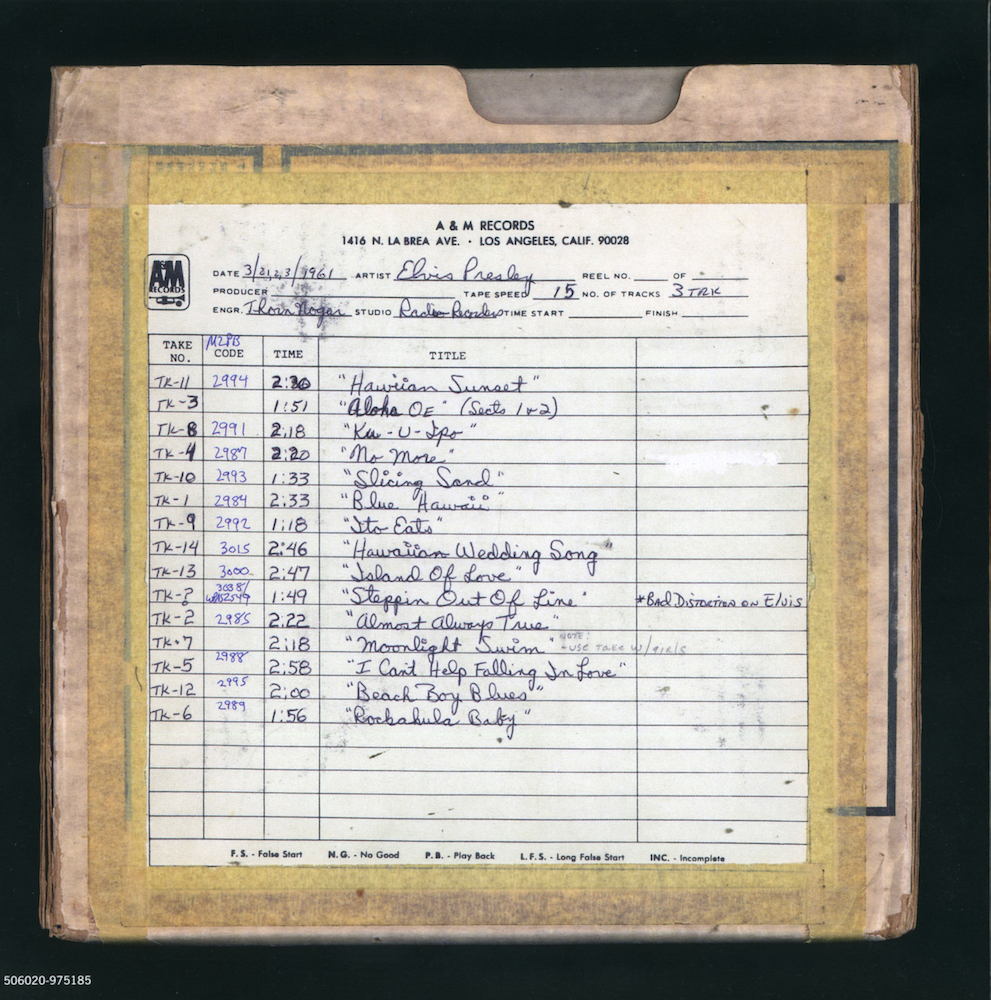 A & M RECORDS
1416 N. LA BREA AVE. · LOS ANGELES, CALIF. 90028
A&M RECORDS
DATE 3/21,2,3/1961 ARTIST Elvis Presley REEL NO. OF
PRODUCER TAPE SPEED 15 NO. OF TRACKS 3 TRK
ENGR. Thorn Nogar STUDIO Radio Recorders TIME START FINISH
TAKE NO. M2PB CODE TIME TITLE
TK-11 2994 2:30 "Hawiian Sunset"
TK-3 1:51 "Aloha OE" (Sects 1+2)
TK-8 2991 2:18 "Ku-U-Ipo"
TK-4 2987 2:20 "No More"
TK-10 2993 1:33 "Slicing Sand"
TK-1 2984 2:33 "Blue Hawaii"
TK-9 2992 1:18 "Ito Eats"
TK-14 3015 2:46 "Hawaiian Wedding Song"
TK-13 3000 2:47 "Island Of Love"
TK-? 3038/ 1:49 "Steppin Out Of Line" *BAD DISTORTION ON ElViS
TK-2 2985 2:22 "Almost Always True"
TK-7 2:18 "Moonlight Swim" NOTE: -USE TAKE W/girls
TK-5 2988 2:58 "I Cant Help Falling In Love"
TK-12 2995 2:00 "Beach Boy Blues"
TK-6 2989 1:56 "Rockahula Baby"
F.S. - False Start N.G. - No Good P.B. - Play Back L.F.S. - Long False Start INC. - Incomplete
506020-975185